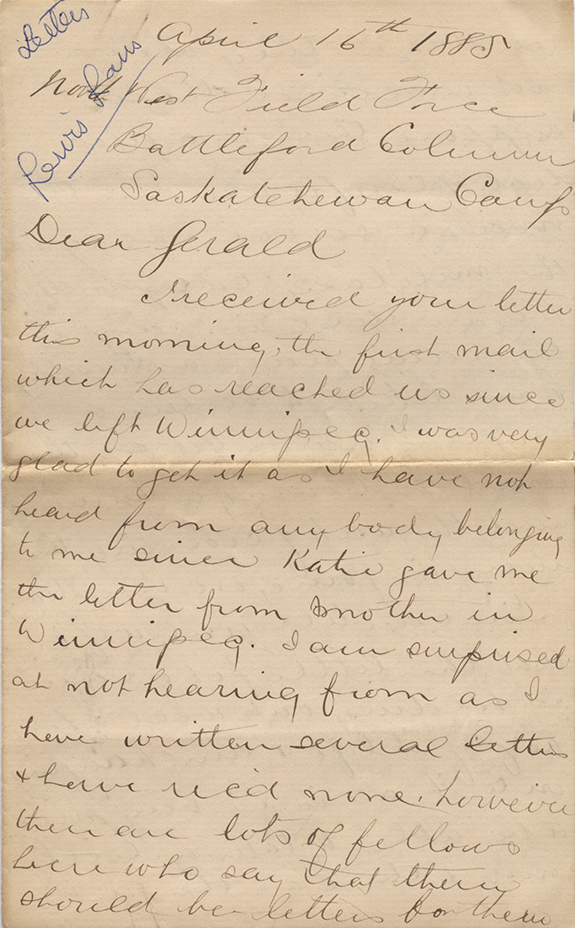 Letters
Lewis
April 16th 1885
North West Field Force
Battleford Column
Saskatchewan Camp
Dear Gerald
I received your letter
this morning, the first mail
which has reached us since
we left Winnipeg. I was very
glad to get it as I have not
heard from anybody belonging
to me since Katie gave me
the letter from Mother in
Winnipeg. I am surprised
at not hearing from as I
have written several letters
& have rec'd none. however
there are lots of fellows
here who say that there
should be letters for them